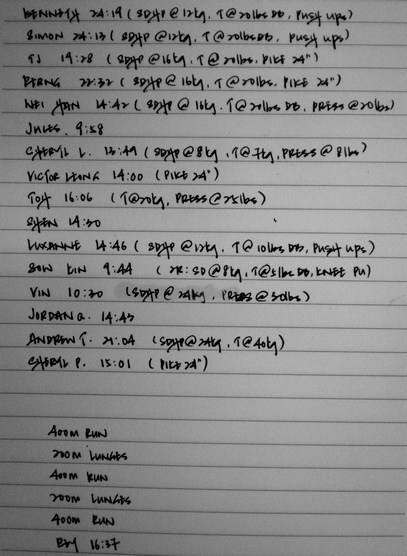 KENNETH 24:19 (SDHP @ 12kg, T@20lbs DB, PUSH UPS)
SIMON 24:13 (SDHP @12kg, T@20lbs DB, PUSH UPS)
TJ 19:28 (SDHP @16kg, T@20lbs, PIKE 24")
BERNG 22:32 (SDHP @ 16kg, T@20lbs, PIKE 24")
WEI HAN 14:42 (SDHP @ 16kg, T@20lbs DB, PRESS @20lbs)
JULES. 9:58
CHERYL L. 13:49 (SDHP @8kg, T@7kg, PRESS@ 8lbs)
VICTOR LEONG 14:00 (PIKE 24")
TOH 16:06 (T@20kg, PRESS@25lbs)
SHEN 14:30
LUXANNE 14:46 (SDHP @12kg, T@10lbs DB, PUSH UPS)
SOW KIN 9:44 (2R: SD@8kg, T@5lbs DB, KNEE PU)
VIN 10:30 (SDHP@24kg, PRESS@30lbs)
JORDAN G. 14:43
ANDREW T. 21:04 (SDHP@24kg, T@40kg)
CHERYL P. 15:01 (PIKE 24")
400M RUN
200M LUNGES
400M RUN
200M LUNGES
400M RUN
16:37